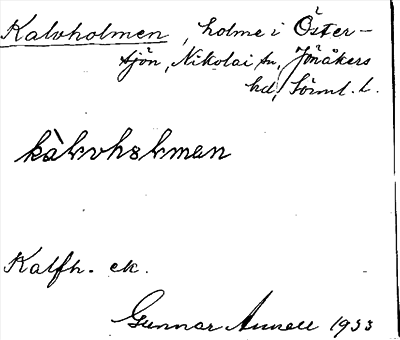 Kalvholmen, holme i Öster-
sjön, Nikolai sn, Jönåkers
hd, Sörml. l.
kàlvhɷlmən
Kalfh. ek.
Gunnar Annell 1933